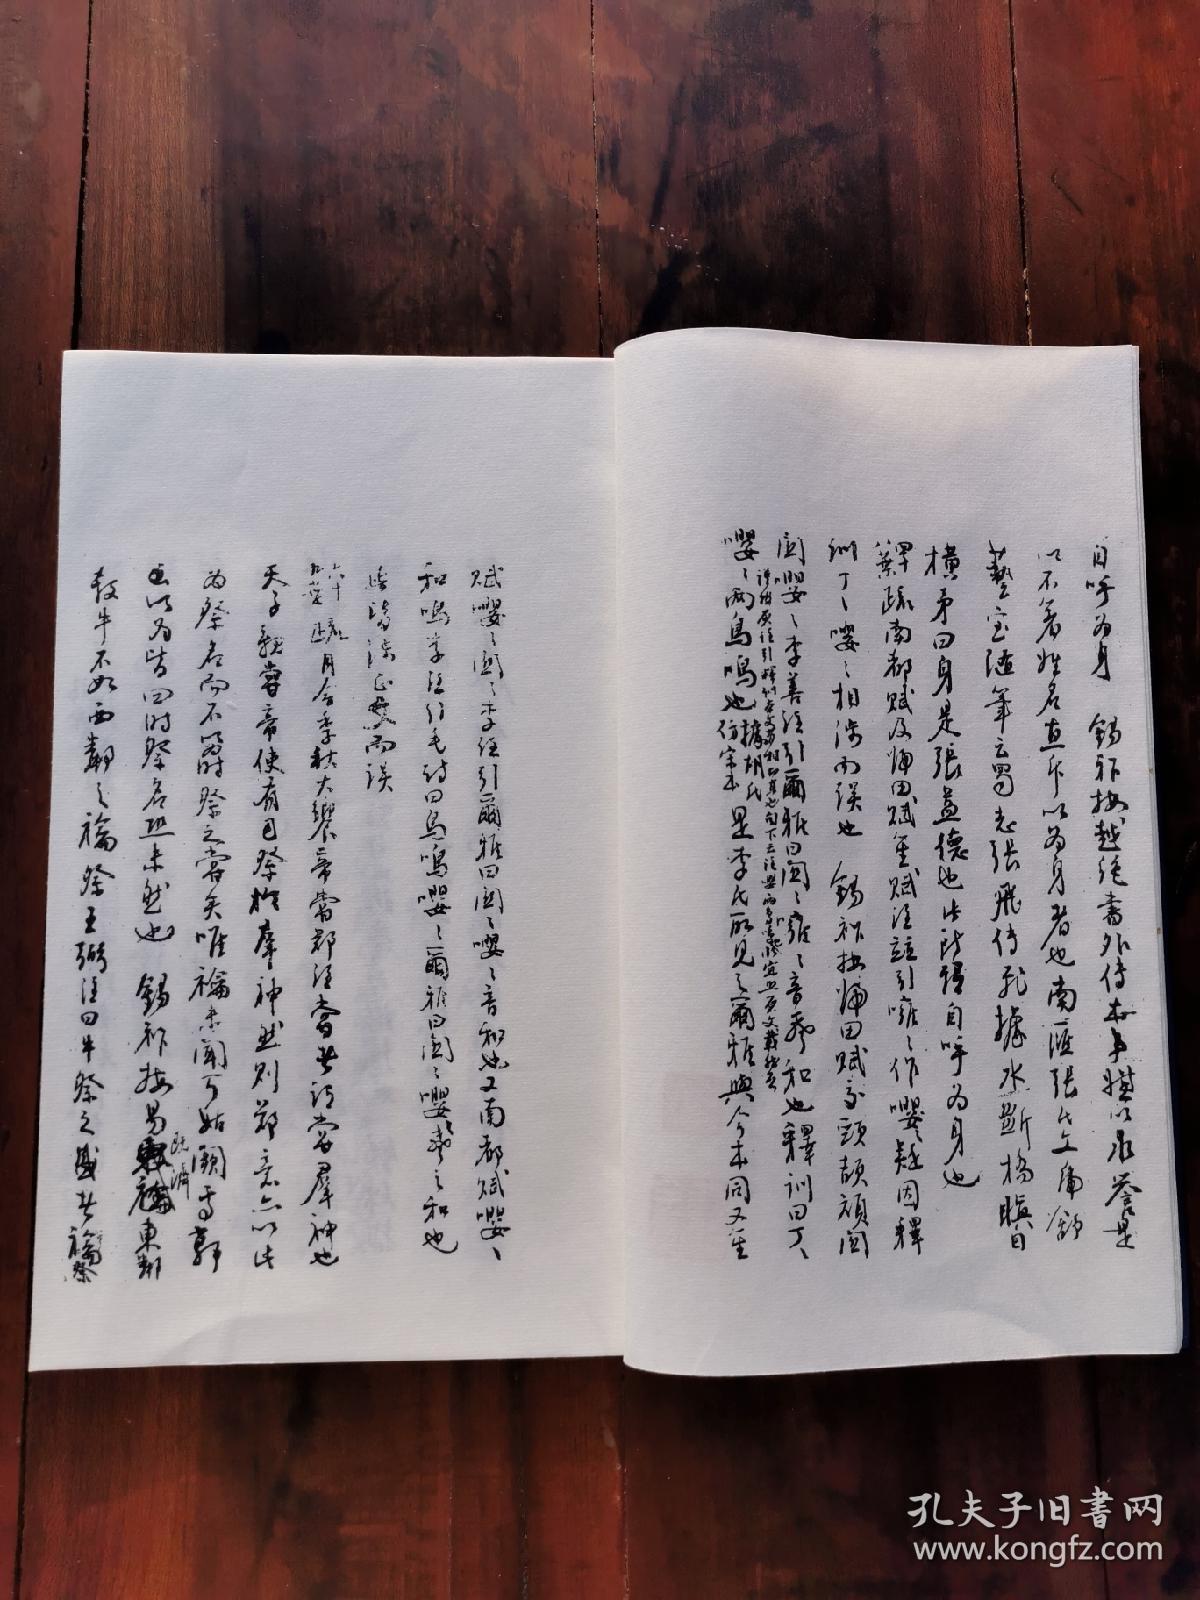 自呼為身　錫祚按越絕書外傳本事
以不著姓名直斥以為身者也南匯張氏文虎舒
藝室隨筆云蜀志張飛傳飛據水斷橋瞋目
橫矛曰身是張益德也此皆謂自呼為身也
葉疏南都賦及歸田賦篁賦注竝引噰噰作嚶嚶疑因釋
訓丁丁嚶嚶相涉而誤也　錫祚按歸田賦交頸頡頏關
關嚶嚶李善注引爾雅曰關關雝雝音聲和也釋訓曰丁丁
嚶嚶兩鳥鳴也
據胡氏
仿宋本
是李氏所見之爾雅與今本同又笙
賦嚶嚶關關李注引爾雅曰關關嚶嚶音和也又南都賦嚶嚶
和鳴李注引毛詩曰鳥鳴嚶嚶爾雅曰關關嚶嚶聲之和也
而誤
六十
九葉疏月令季秋大饗帝嘗鄭注嘗者謂嘗群神也
天子親嘗帝使有司祭於羣神然則鄭意亦以此
為祭名而不以為時祭之嘗矣唯禴未聞可姑闕焉郭
氏以為皆四時祭名恐未然也　錫祚按易
既濟
東鄰
殺牛不如西鄰之禴祭王弼注曰牛祭之盛者禴祭
孔夫子旧书网
www.kongfz.com